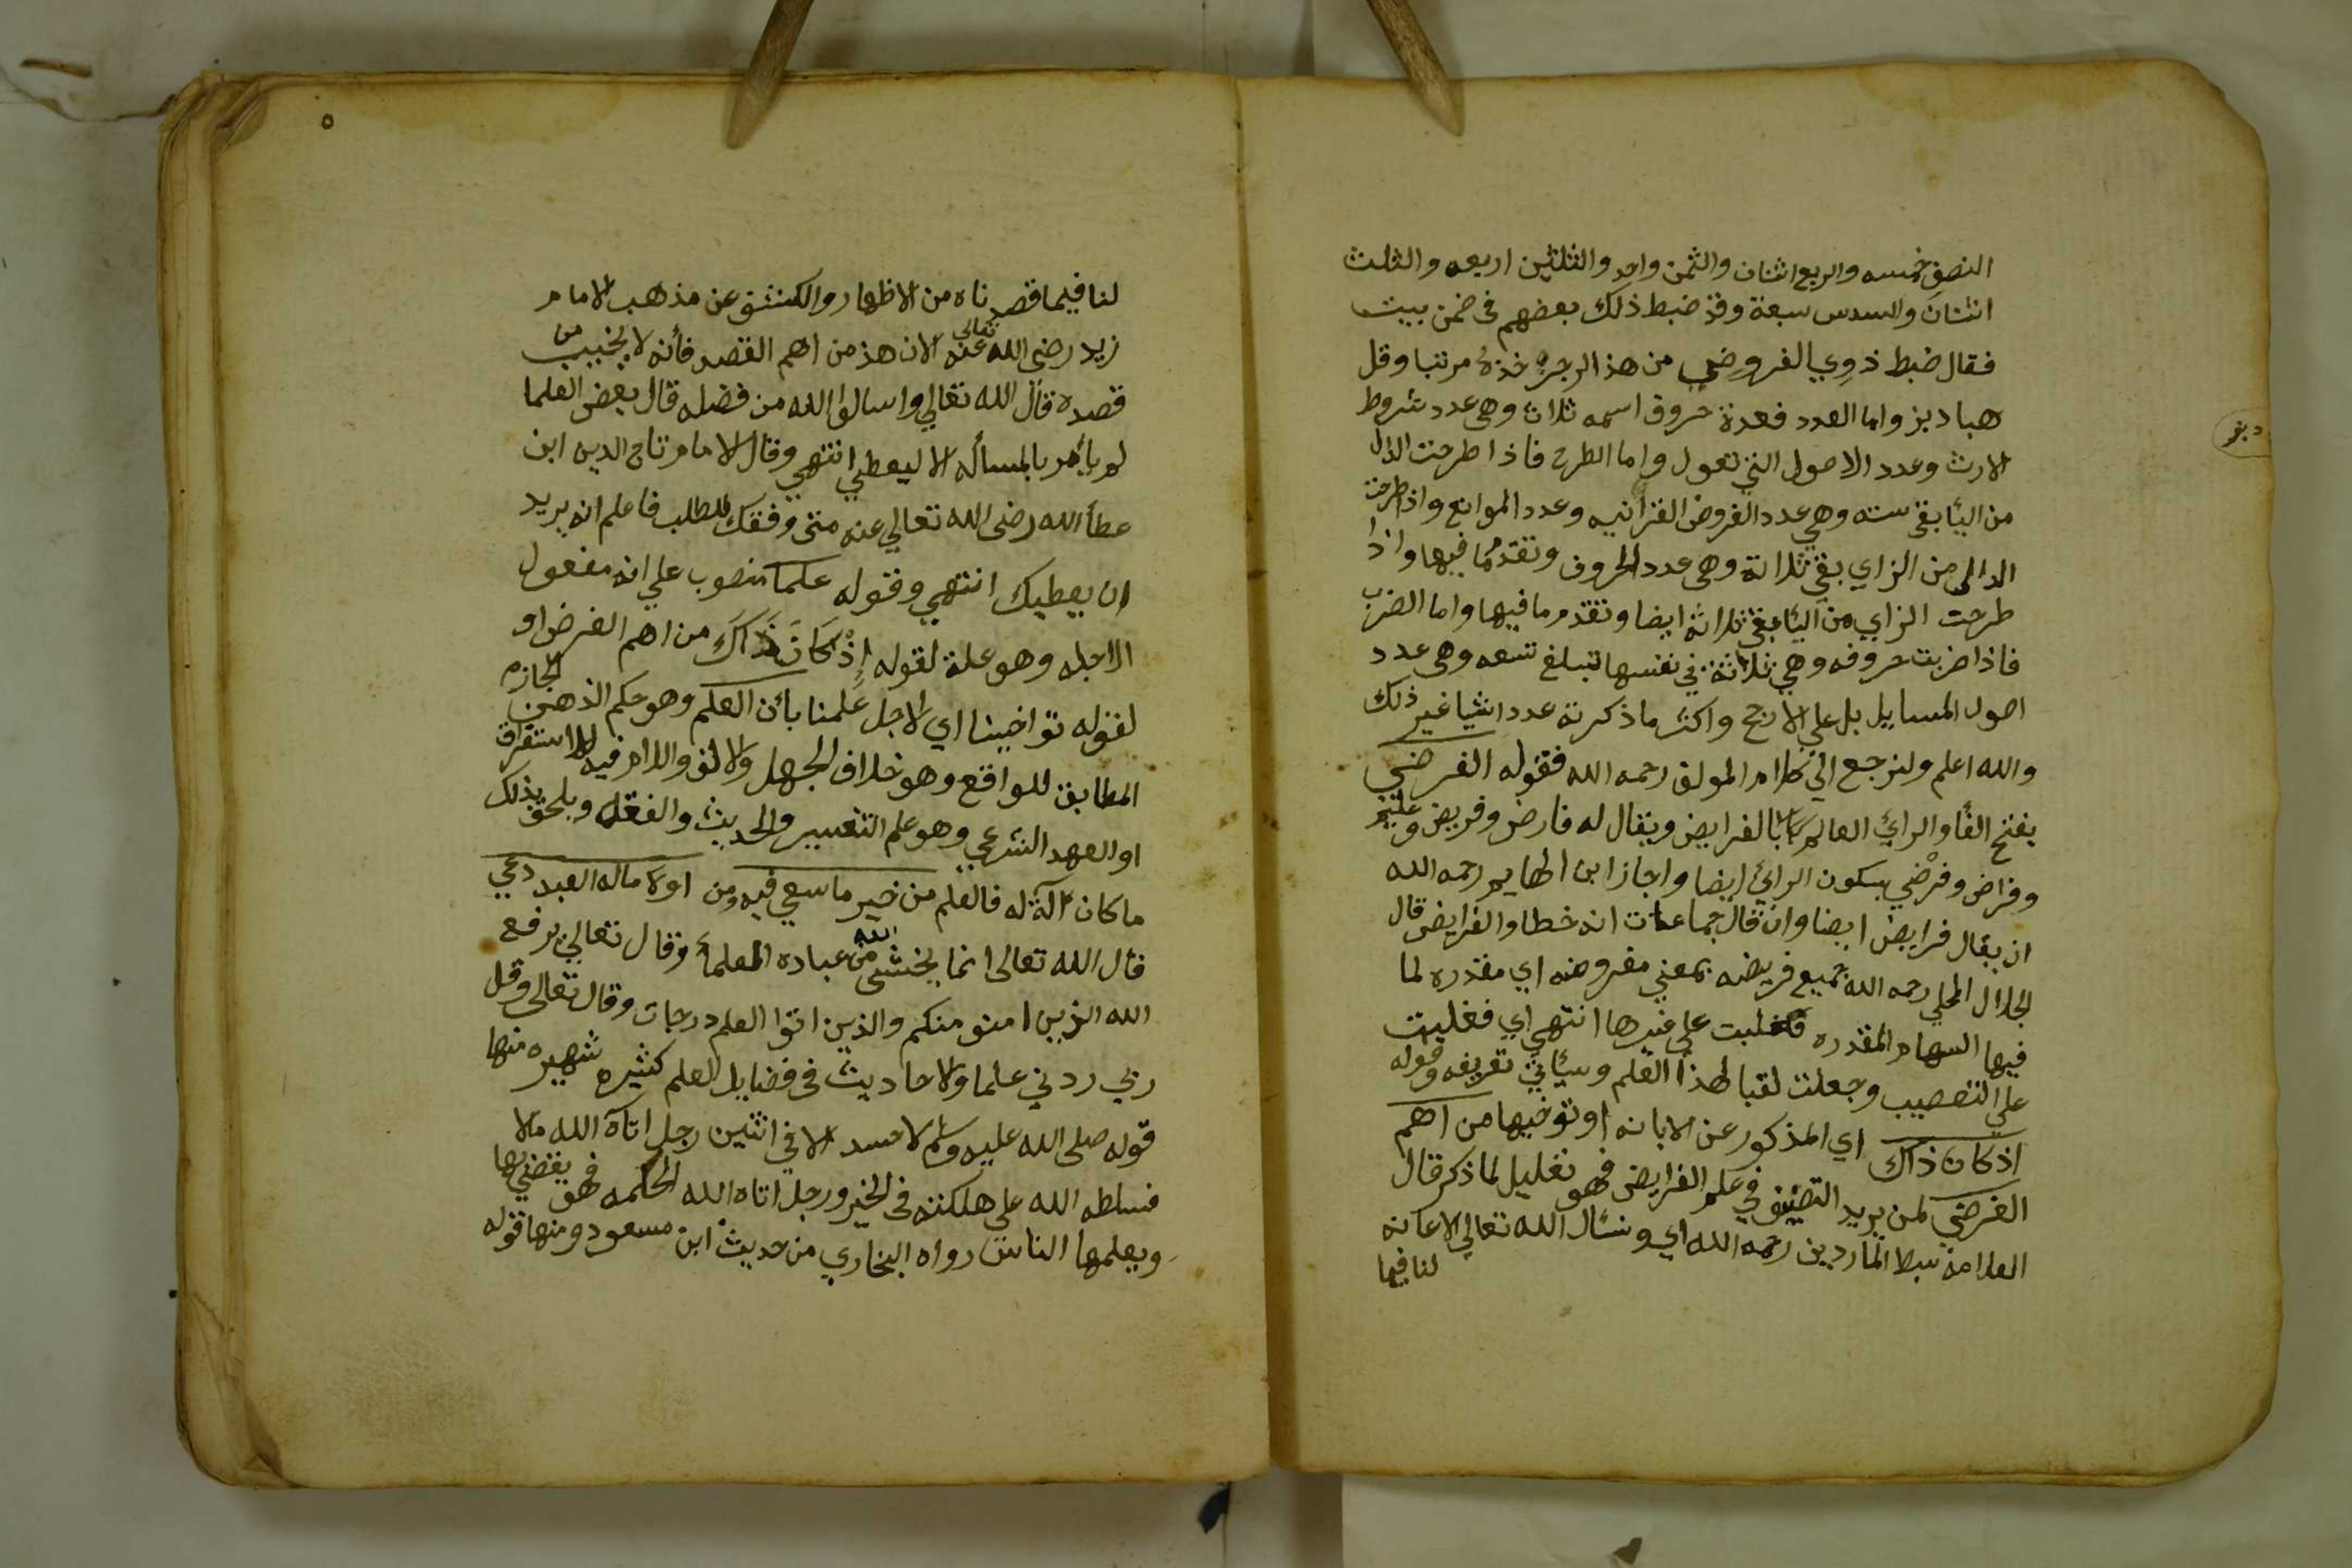 النصف خمسه والربع اثنان والثمن واحد والثلثين اربعه والثلث
اثنان والسدس سبعة وقد ضبط ذلك بعضهم فى ضمن بيت
فقال ضبط ذوي الفروض من هذا الرجز خذه مرتبا وقل
هبا دبز واما العدد فعدة حروف اسمه ثلاث وهى عدد شروط
الارث وعدد الاصول التى تعول واما الطرح فاذا طرحت الدال
من اليا بقى سته وهي عدد الفروض القرانيه وعدد الموانع واذا طرحت
الدال من الزاي بقي ثلاثة وهى عدد الحروف وتقدم ما فيها واذا
طرحت الزاي من اليا بقى ثلاثة ايضا وتقدم ما فيها واما الضرب
فاذا ضربت حروفه وهي ثلاثة في نفسها تبلغ تسعه وهى عدد
اصول المسايل بل علي الارجح واكثر ما ذكرته عدد اشيا غير ذلك
والله اعلم ولنرجع الي كلام المولف رحمه الله فقوله الفرضي
بفتح الفأ والرائ العالم بالفرايض ويقال له فارض وفريض وعليم
وفراض وفرْضي بسكون الرائ ايضا واجاز ابن الهايم رحمه الله
ان يقال فرايض ايضا وان قال جماعات انه خطا والفرايض قال
الجلال المحلي رحمه الله جميع فريضه بمعني مفروضه اي مقدره لما
فيها السهام المقدره فغلبت علي غيرها انتهي اي فغلبت
علي التعصيب وجعلت لقبا لهذا العلم وسيأتي تعريفه وقوله
اذ كان ذاك اي المذكور عن الابانه او توخيها من اهم
الفرضي لمن يريد التصنيف في علم الفرايض فهو تعليل لما ذكر قال
العلامة سبط الماردين رحمه الله اي ونسأل الله تعالي الاعانه
لنا فيما
٥
لنا فيما قصدناه من الاظهار والكشف عن مذهب الامام
زيد رضى الله تعالى عنه الان هذ من اهم القصد فأنه لا يخيب من
قصده قال الله تعالي واسالوا الله من فضله قال بعض العلما
لم يأمر بالمسأله الا ليعطي انتهي وقال الامام تاج الدين ابن
عطأ الله رضى الله تعالي عنه متى وفقك للطلب فاعلم انه يريد
ان يعطيك انتهي وقوله علما منصوب علي انه مفعول
الاجله وهو علة لقوله إِذْ كَانَ ذَاكَ من اهم الغرض او
لقوله تواخينا اي لاجل عَلمنا بأن العلم وهو حكم الذهن الجازم
المطابق للواقع وهو خلاف الجهل والالف واللام فيه للاستغراق
او العهد الشرعي وهو علم التفسير والحديث والفقه ويلحق بذلك
ما كان آلة له فالعلم من خير ما سعي فيه ومن اولا ماله العبد دعي
قال الله تعالى انما يخشى الله من عباده العلمأ وقال تعالي يرفع
الله الذين امنو منكم والذين اتوا العلم درجات وقال تعالى وقل
ربي ردني علما والاحاديث فى فضايل العلم كثيره شهيره منها
قوله صلى الله عليه وسلم لا حسد الا في اثنين رجل اتاه الله مالا
فسلطه الله على هلكته فى الخير ورجل اتاه الله الحكمه فهو يقضي بها
ويعلمها الناس رواه البخاري من حديث ابن مسعود ومنها قوله